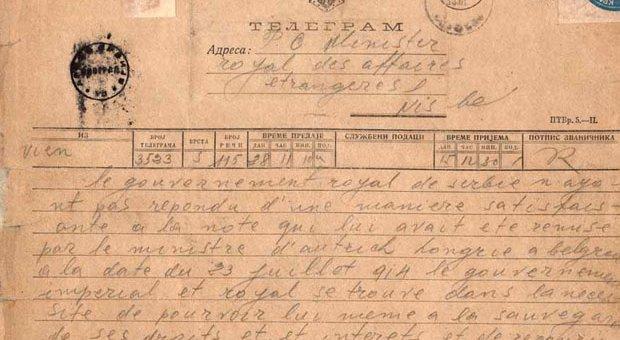 ТЕЛЕГРАМ
Адреса: P C Minister
royal des affaires
etrangeres
Nis be
ПТБр. 5.—II.
ИЗ БРОЈ ТЕЛЕГРАМА ВРСТА БРОЈ РЕЧИ ВРЕМЕ ПРЕДАЈЕ ДАН ЧАС МИН. ПОД. СЛУЖБЕНИ ПОДАЦИ ВРЕМЕ ПРИЈЕМА ДАН ЧАС МИН. ПОД. ПОТПИС ЗВАНИЧНИКА
vien 3523 5 115 28 11 10 15 12 30
le gouvernement royal de serbie n aya
nt pas repondu d'une maniere satisfais
ante a la note qui lui avait ete remise
par le ministre d'autrich hongrie a belgra
a la date du 23 juillot 914 le gouverneme
imperial et royal se trouve dans la neces
site de pourvoir lui meme a la sauvegar
de ses droits et et interets et de